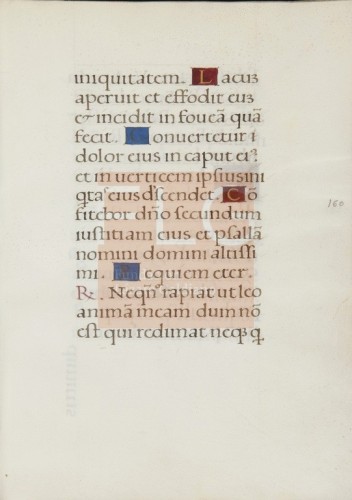 iniquitatem. Lacuȝ
aperuit et effodit euȝ
et incidit in foueā quā
fecit. Conuertetur i
dolor eius in caput ei⁹
et in uerticem ipsius ini
qtas eius dscendet. Cō
fitebor dño secundum
iustitiam eius et psallā
nomini domini altissi
mi. Requiem eter.
R. Neqñ rapiat ut leo
animā meam dum nō
est qui redimat neqȝ q
160